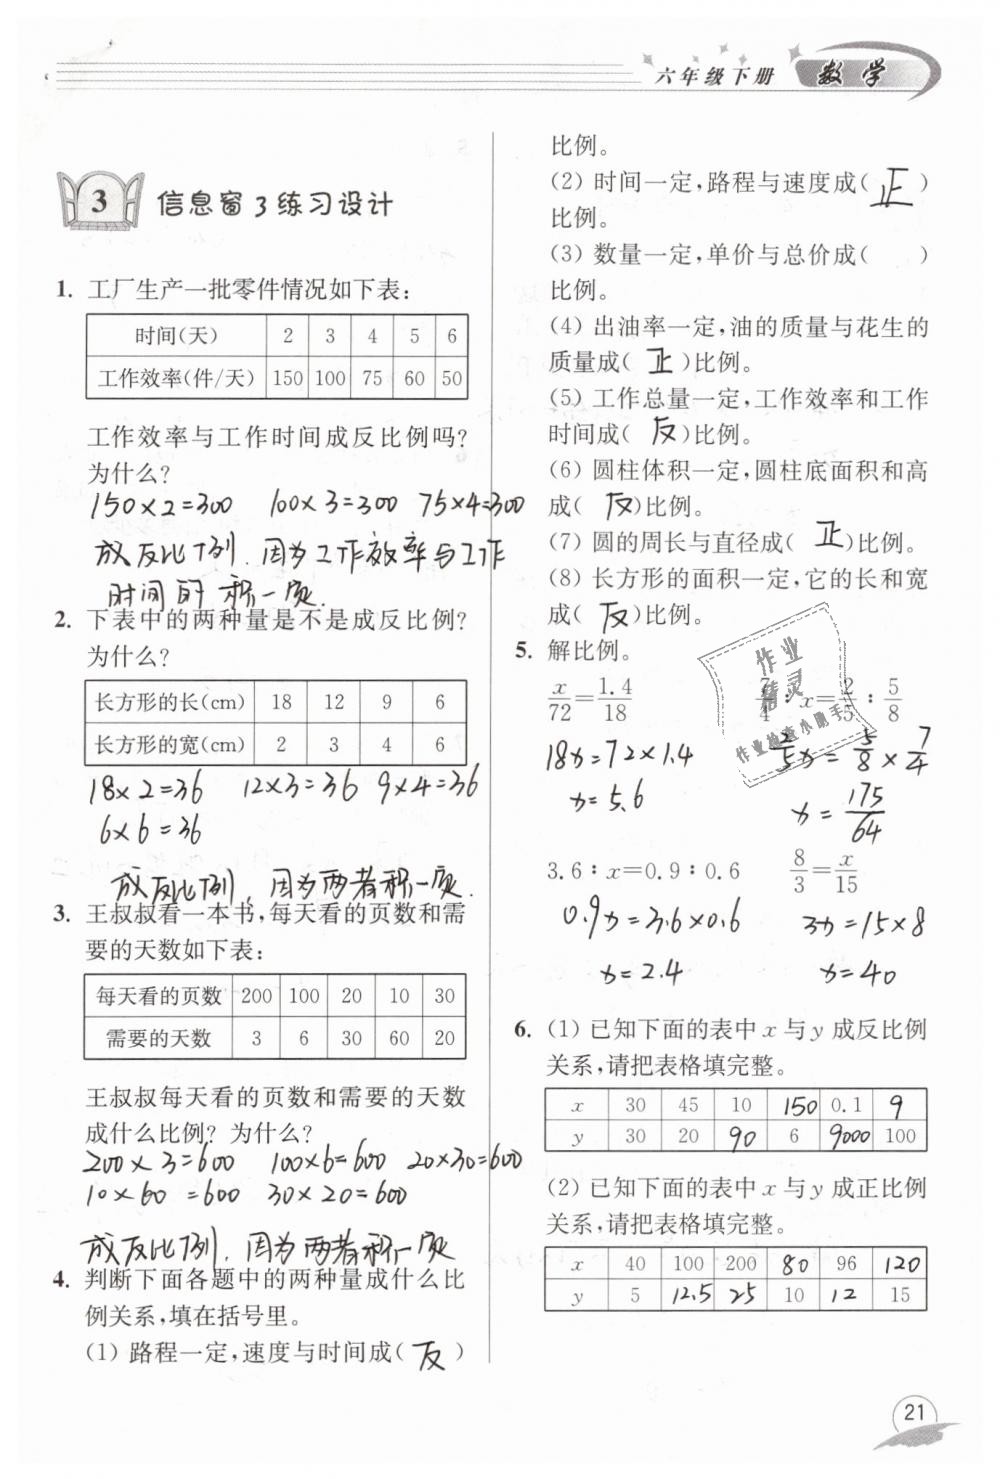 六年级下册 数学
3 信息窗3练习设计
1. 工厂生产一批零件情况如下表:
时间(天) 2 3 4 5 6
工作效率(件/天) 150 100 75 60 50
工作效率与工作时间成反比例吗?
为什么?
150×2=300 100×3=300 75×4=300
成反比例.因为工作效率与工作
时间的积一定.
2. 下表中的两种量是不是成反比例?
为什么?
长方形的长(cm) 18 12 9 6
长方形的宽(cm) 2 3 4 6
18×2=36 12×3=36 9×4=36
6×6=36
成反比例,因为两者积一定.
3. 王叔叔看一本书,每天看的页数和需
要的天数如下表:
每天看的页数 200 100 20 10 30
需要的天数 3 6 30 60 20
王叔叔每天看的页数和需要的天数
成什么比例? 为什么?
200×3=600 100×6=600 20×30=600
10×60=600 30×20=600
成反比例.因为两者积一定
4. 判断下面各题中的两种量成什么比
例关系,填在括号里。
(1) 路程一定,速度与时间成( 反 )
比例。
(2) 时间一定,路程与速度成( 正 )
比例。
(3) 数量一定,单价与总价成( )
比例。
(4) 出油率一定,油的质量与花生的
质量成( 正 )比例。
(5) 工作总量一定,工作效率和工作
时间成( 反 )比例。
(6) 圆柱体积一定,圆柱底面积和高
成( 反 )比例。
(7) 圆的周长与直径成( 正 )比例。
(8) 长方形的面积一定,它的长和宽
成( 反 )比例。
5. 解比例。
x/72=1.4/18 7/4:x=2/5:5/8
18x=72×1.4 2/5x=5/8×7/4
x=5.6 x=175/64
作业
精灵
作业检查小助手
3.6:x=0.9:0.6 8/3=x/15
0.9x=3.6×0.6 3x=15×8
x=2.4 x=40
6. (1) 已知下面的表中 x 与 y 成反比例
关系,请把表格填完整。
x 30 45 10 150 0.1 9
y 30 20 90 6 9000 100
(2) 已知下面的表中 x 与 y 成正比例
关系,请把表格填完整。
x 40 100 200 80 96 120
y 5 12.5 25 10 12 15
21